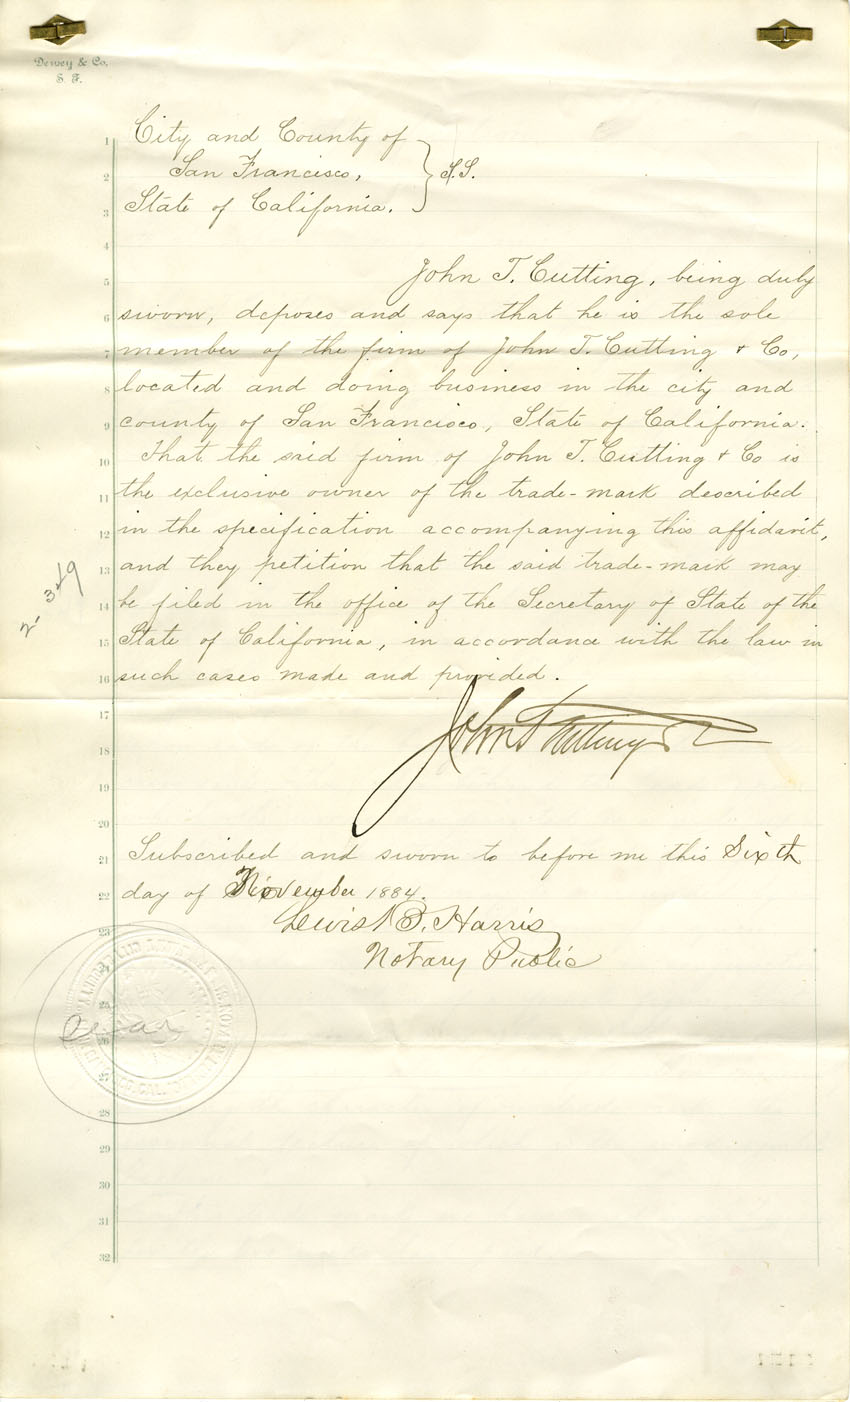 Dewey & Co.
S. F.
City and County of
San Francisco,
State of California.
} S.S.
John T. Cutting, being duly
sworn, deposes and says that he is the sole
member of the firm of John T. Cutting & Co,
located and doing business in the city and
county of San Francisco, State of California.
That the said firm of John T. Cutting & Co is
the exclusive owner of the trade-mark described
in the specification accompanying this affidavit,
and they petition that the said trade-mark may
be filed in the office of the Secretary of State of the
State of California, in accordance with the law in
such cases made and provided.
John T Cutting
Subscribed and sworn to before me this Sixth
day of November 1884.
Lewis B. Harris
Notary Public
Seal
1
2
3
4
5
6
7
8
9
10
11
12
13
14
15
16
17
18
19
20
21
22
23
24
25
26
27
28
29
30
31
32